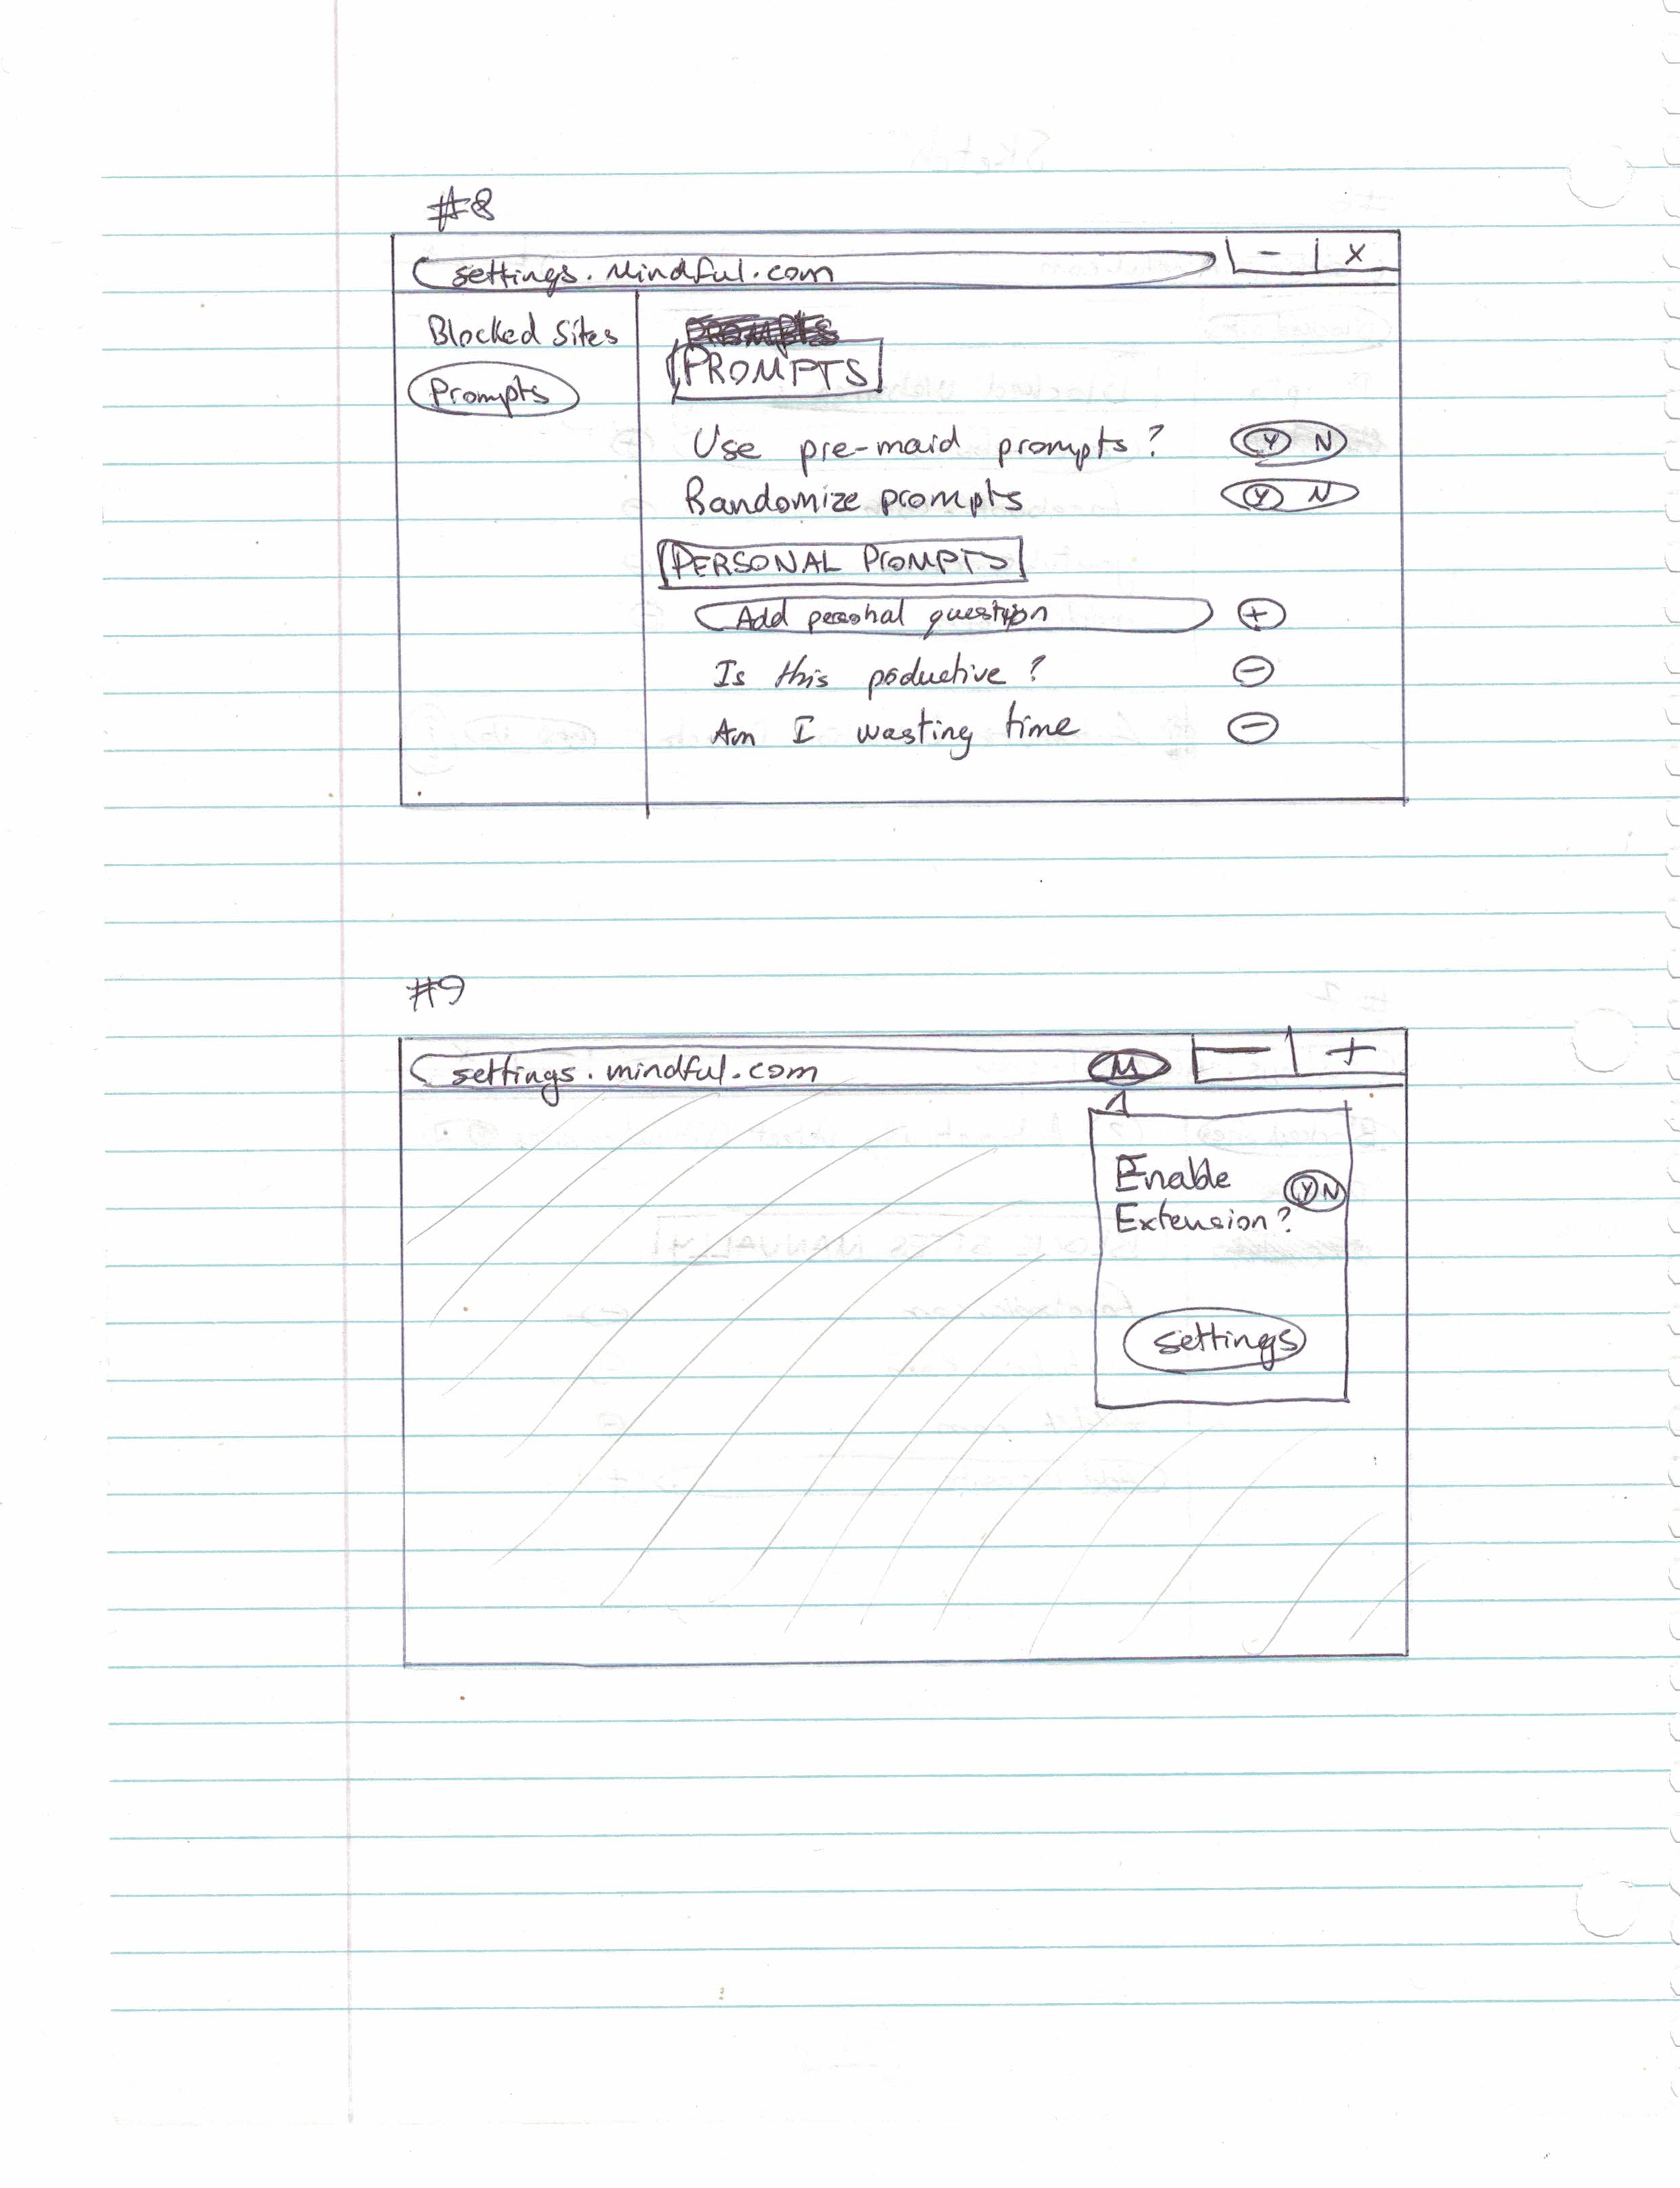 #8
settings.Mindful.com - | X
Blocked Sites
Prompts
PROMPTS
Use pre-maid prompts? Y N
Randomize prompts Y N
PERSONAL PROMPTS
Add personal question +
Is this poductive? -
Am I wasting time -
#9
settings.mindful.com M - +
Enable Y N
Extension?
settings